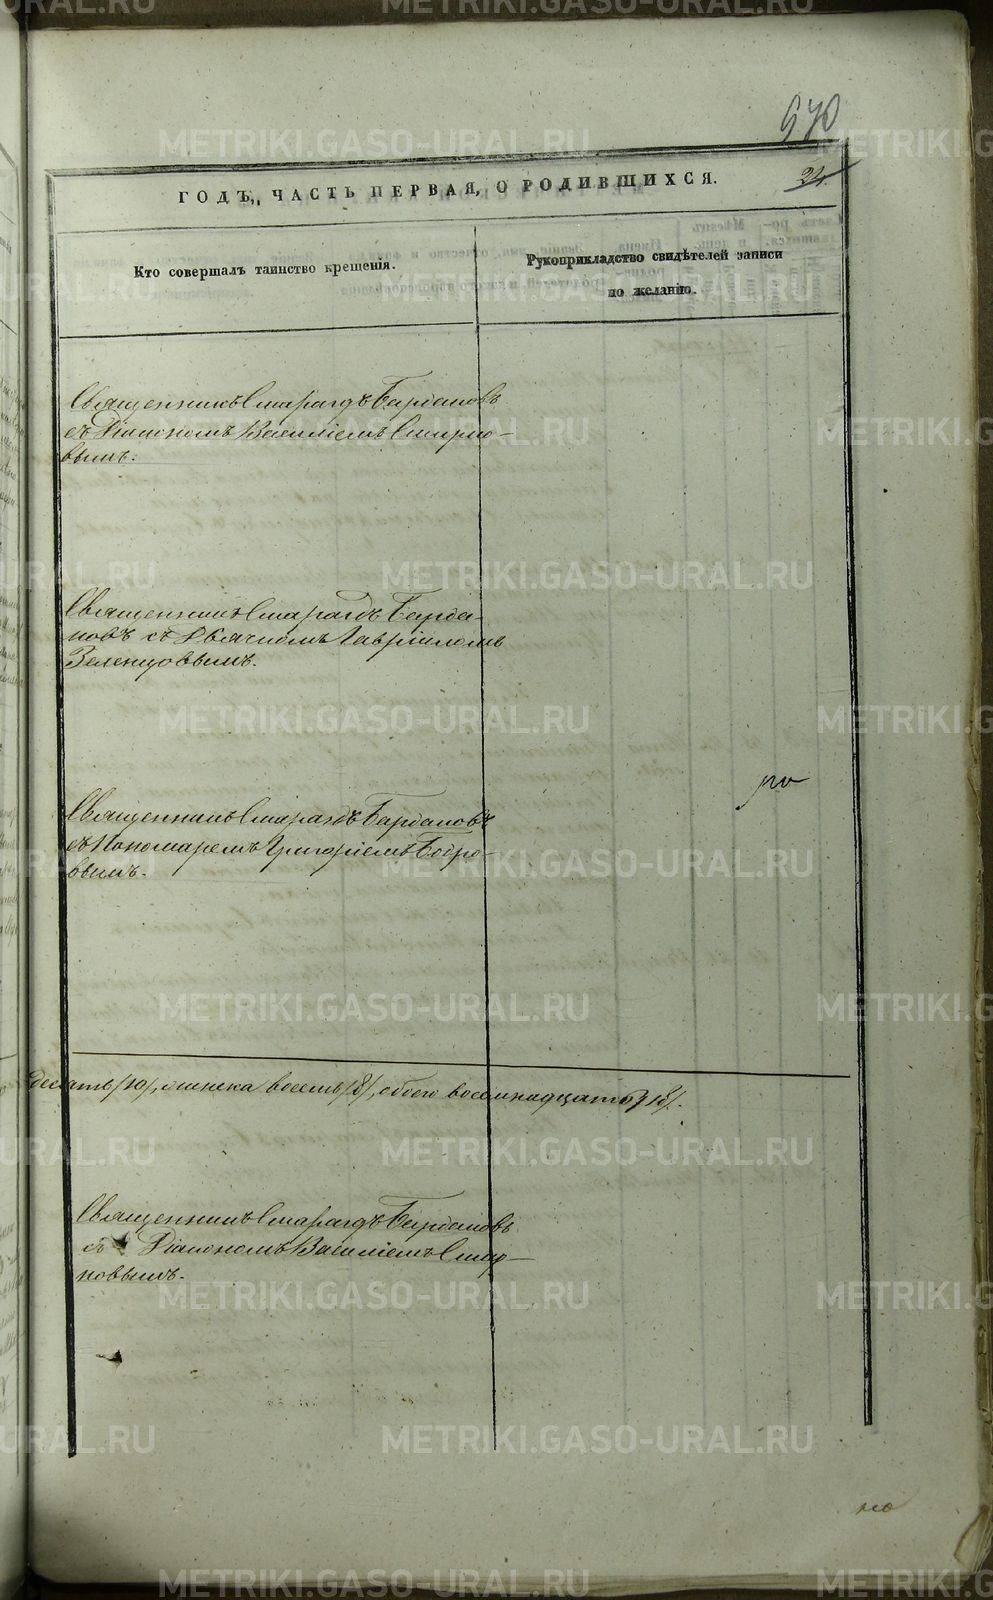 METRIKI.GASO-URAL.RU
970
24.
ГОДЪ,, ЧАСТЬ ПЕРВАЯ, О РОДИВШИХСЯ.
Кто совершалъ таинство крещенія.
Рукоприкладство свидѣтелей записи
по желанію.
Священникъ Смарагдъ Бардановъ
съ Діакономъ Василіемъ Смирно-
вымъ.
Священникъ Смарагдъ Барда-
новъ съ Дьячкомъ Гавріиломъ
Зеленцовымъ.
Священникъ Смарагдъ Бардановъ
съ Пономаремъ Григоріемъ Бобро-
вымъ.
десять /10/, женска восемь /8/, обоего восемнадцать /18/.
Священникъ Смарагдъ Бардановъ
съ Діакономъ Василіемъ Смир-
новымъ.